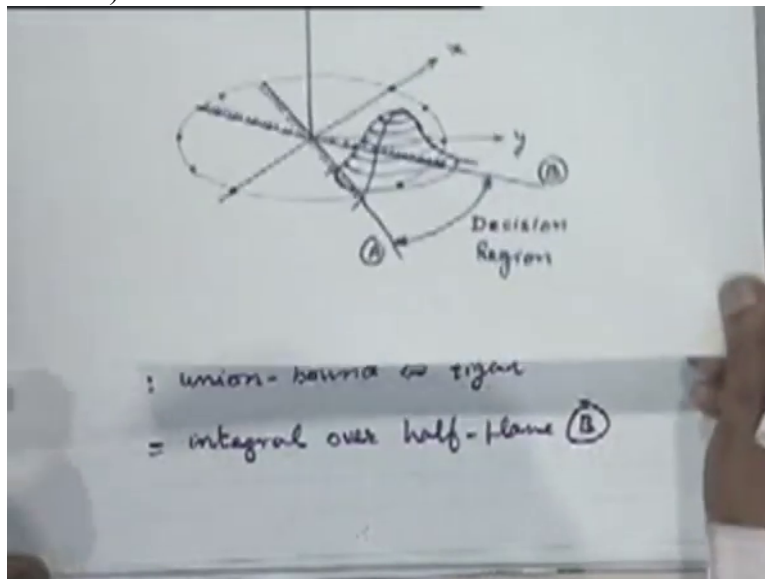 x
y
B
Decision
Region
A
: union-bound is tight
= integral over half-plane B